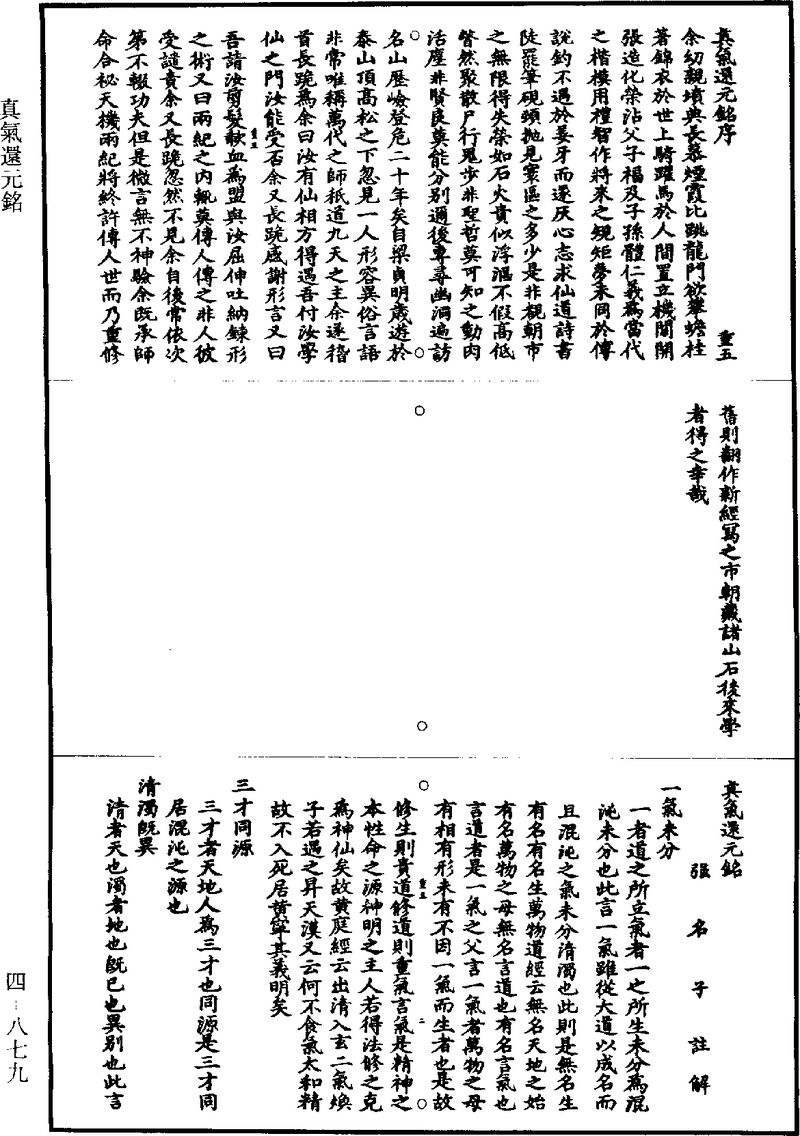 真氣還元銘
四·八七九
真氣還元銘序　重五
余幼親墳典長慕煙霞比跳龍門欲攀蟾桂
著錦衣於世上騎躍馬於人間置立機關開
張造化榮沾父子福及子孫體仁義為當代
之楷模用禮智作將來之規矩夢未同於傅
說釣不遇於姜牙而遂灰心志求仙道詩書
陡罷筆硯頓拋見寰區之多少是非覩朝市
之無限得失榮如石火貴似浮漚不假高低
瞥然聚散尸行鬼步非聖哲莫可知之動肉
活塵非賢良莫能分別邇後專尋幽洞遍訪
名山歷嶮登危二十年矣自梁貞明歲遊於
泰山頂高松之下忽見一人形容異俗言語
非常唯稱萬代之師秖道九天之主余遂稽
首長跪為余曰汝有仙相方得遇吾付汝學
仙之門汝能受否余又長跪感謝形言又曰
重五
吾請汝剪髮歃血為盟與汝屈伸吐納鍊形
之術又曰兩紀之內輒莫傳人傳之非人彼
受譴責余又長跪忽然不見余自後常依次
第不輟功夫但是微言無不神驗余既承師
命合祕天機兩紀將終許傳人世而乃重修
舊則翻作新經寫之市朝藏諸山石後來學
者得之幸哉
真氣還元銘
張名子註解
一氣未分
一者道之所立氣者一之所生未分為混
沌未分也此言一氣雖從大道以成名而
且混沌之氣未分清濁也此則是無名生
有名有名生萬物道經云無名天地之始
有名萬物之母無名言道也有名言氣也
言道者是一氣之父言一氣者萬物之母
有相有形未有不因一氣而生者也是故
重五　二
修生則貴道修道則重氣言氣是精神之
本性命之源神明之主人若得法修之克
為神仙矣故黃庭經云出清入玄二氣煥
子若遇之昇天漢又云何不食氣太和精
故不入死居黃寧其義明矣
三才同源
三才者天地人為三才也同源是三才同
居混沌之源也
清濁既異
清者天也濁者地也既已也異別也此言